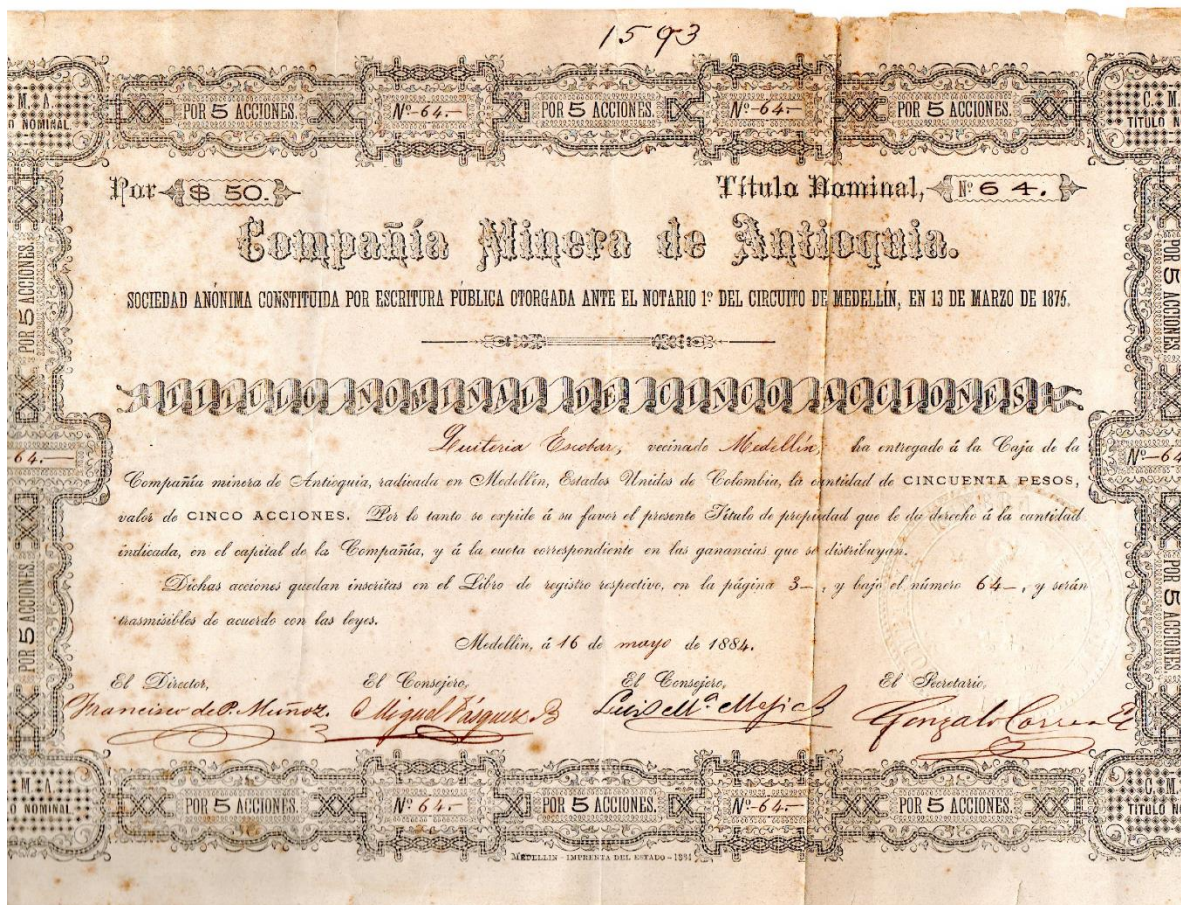 1593
C. M.
M. A.
POR 5 ACCIONES. Nº-64.- POR 5 ACCIONES. Nº-64.- POR 5 ACCIONES.
O NOMINAL
TITULO N
Por $ 50.
Título Nominal, Nº 64.
Compañía Minera de Antioquia.
SOCIEDAD ANÓNIMA CONSTITUIDA POR ESCRITURA PÚBLICA OTORGADA ANTE EL NOTARIO 1º DEL CIRCUITO DE MEDELLÍN, EN 13 DE MARZO DE 1875.
POR 5 ACCIONES.
POR 5 ACCIONES.
TITULO NOMINAL DE CINCO ACCIONES
Quiteria Escobar, vecina de Medellín, ha entregado á la Caja de la
64.-
Nº-64
Compañía minera de Antioquia, radicada en Medellín, Estados Unidos de Colombia, la cantidad de CINCUENTA PESOS,
valor de CINCO ACCIONES. Por lo tanto se expide á su favor el presente Título de propiedad que le da derecho á la cantidad
indicada, en el capital de la Compañía, y á la cuota correspondiente en las ganancias que se distribuyan.
Dichas acciones quedan inscritas en el Libro de registro respectivo, en la página 3-, y bajo el número 64-, y serán
trasmisibles de acuerdo con las leyes.
POR 5 ACCIONES.
POR 5 ACCIONES
Medellín, á 16 de mayo de 1884.
El Director, El Consejero, El Consejero, El Secretario,
Francisco de P. Muñoz. Miguel Vásquez B Luis Mª Mejía Gonzalo Correa
M. A.
C. M.
O NOMINAL
TITULO N
POR 5 ACCIONES. Nº 64.- POR 5 ACCIONES. Nº-64.- POR 5 ACCIONES.
MEDELLIN - IMPRENTA DEL ESTADO - 1884